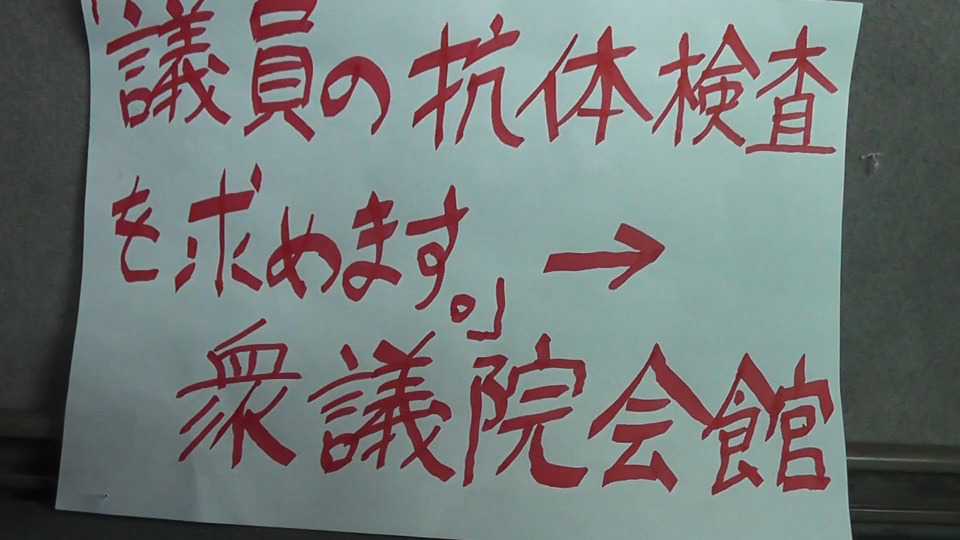 「議員の抗体検査
を求めます。」→
衆議院会館